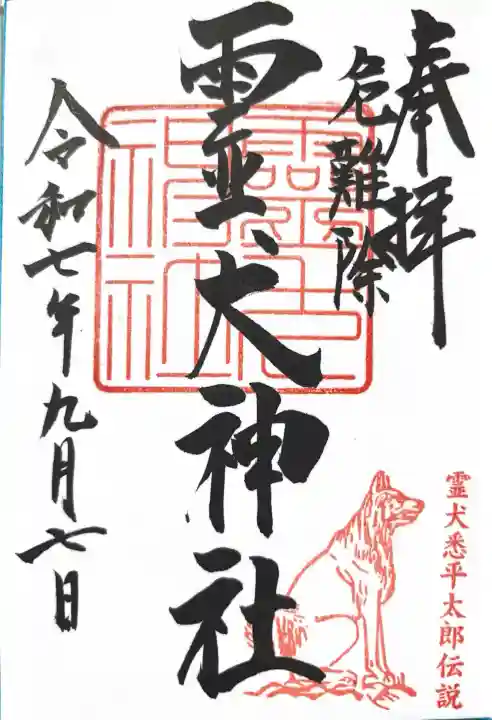 奉拝
危難除
霊犬神社
令和七年九月七日
霊犬悉平太郎伝説